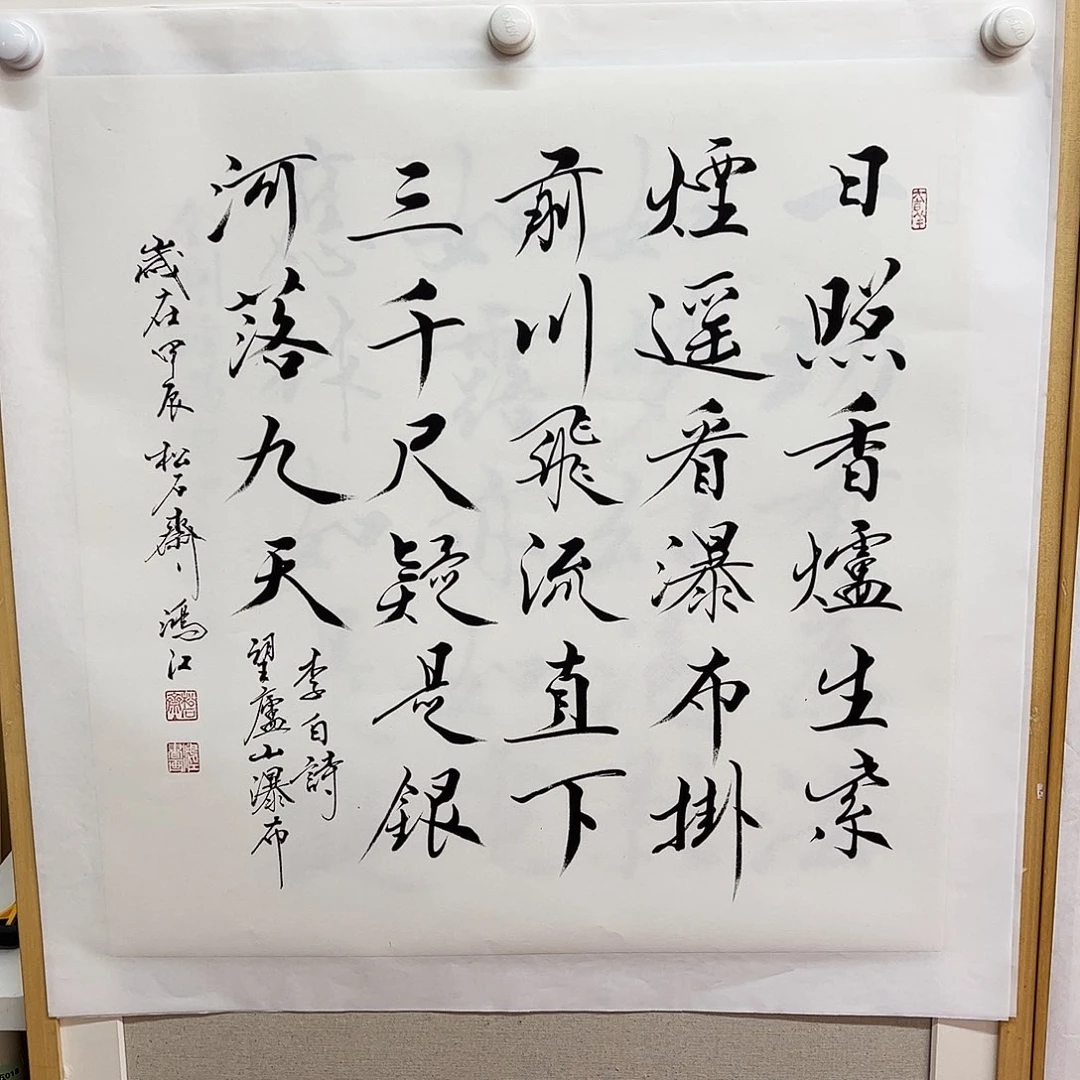 日照香爐生紫
煙遥看瀑布掛
前川飛流直下
三千尺疑是銀
河落九天
李白詩
望廬山瀑布
歲在甲辰松石齋鴻江